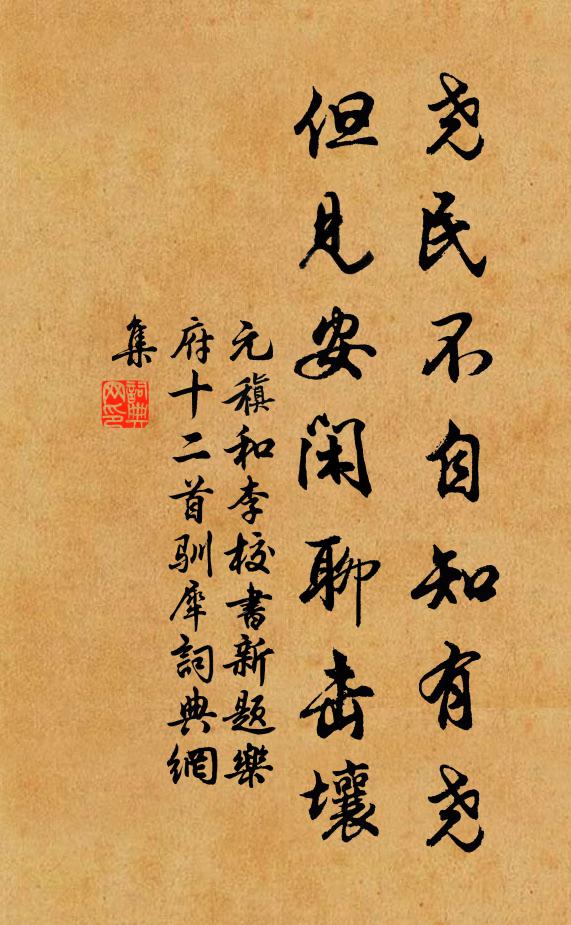 尧民不自知有尧
但见安闲聊击壤
元稹和李校書新题樂
府十二首驯犀詞典網
集
詞典
网印